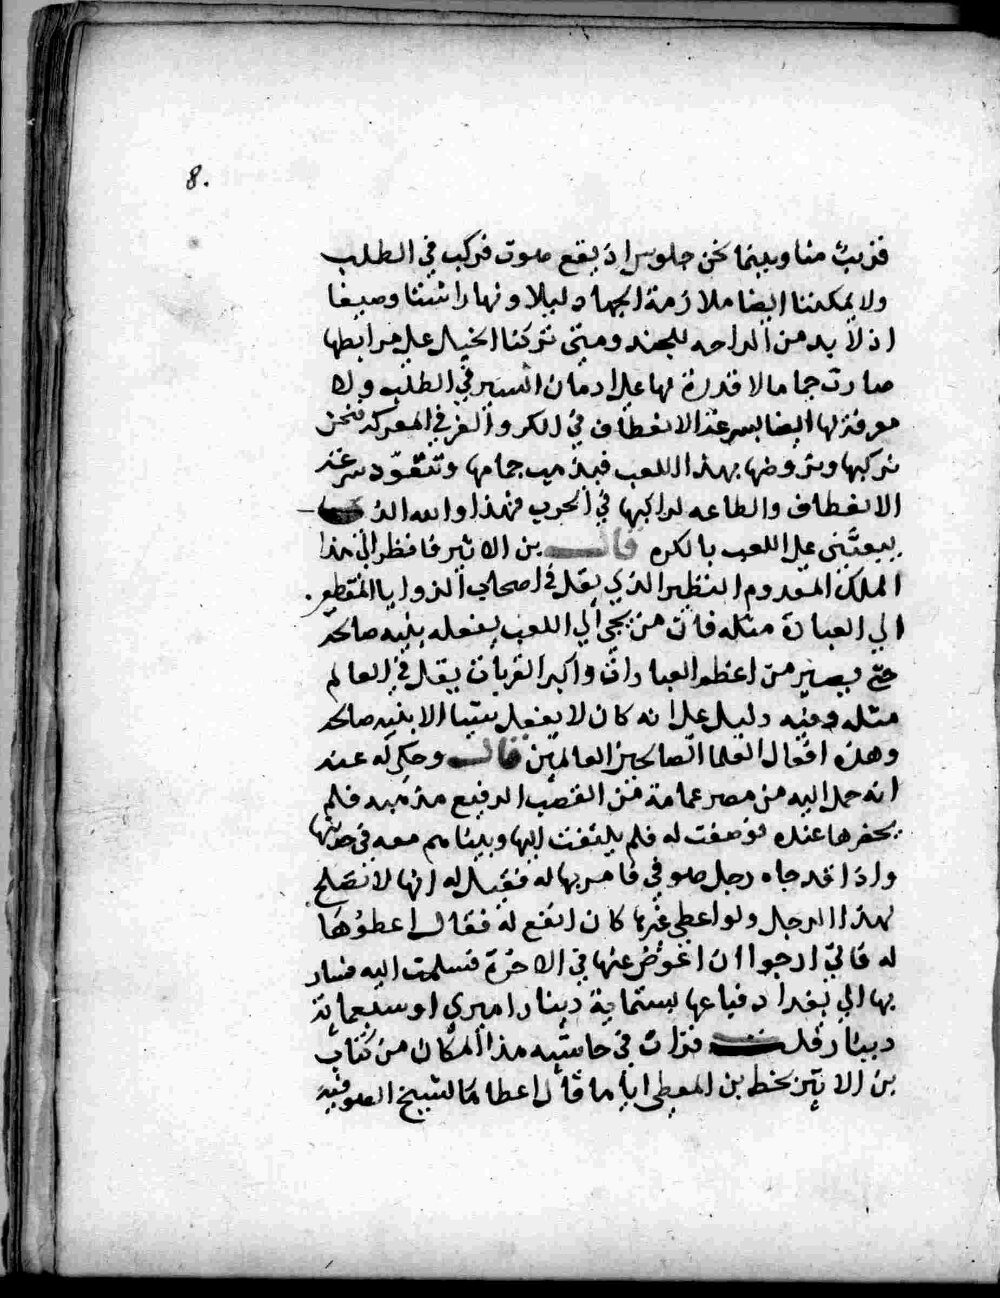 8.
قريب منا وبينما نحن جلوس اذ يقع صوت فنركب في الطلب
ولا يمكننا ايضا ملازمة الجهاد ليلا ونهارا شتتا وصيفا
اذ لا بد من الراحه للجند ومتى تركنا الخيل على مرابطها
صارت جماما لا قدرة لها على ادمان السير في الطلب ولا
معرفة لها ايضا بسرعة الانعطاف في الكر والفر في المعركه فنحن
نركبها ونروضها بهذا اللعب فيذهب جمامها وتتعوّد سرعة
الانعطاف والطاعه لراكبها في الحرب فهذا والله الذي
يبعثني على اللعب بالكره قال بن الاثير فانظر الى هذا
الملك المعدوم النظير الذي يقل في اصحاب الزوايا المنقطعين
الي العبادة مثله فان من يجي الي اللعب يفعله بنيه صالحة
حتى يصير من اعظم العبادات واكبر القربات يقل في العالم
مثله وفيه دليل على انه كان لا يفعل شيا الا بنيه صالحه
وهذه افعال العلما الصالحين العالمين قال وحكي له عنه
انه حمل اليه من مصر عمامة من القصب الرفيع مذهبه فلم
يحضرها عنده فوصفت له فلم يلتفت اليها وبينما هم معه في حديثها
واذا قد جاه رجل صوفي فامر بها له فقيل له انها لا تصلح
لهذا الرجل ولو اعطي غيرها كان انفع له فقال اعطوها
له فاني ارجوا ان اعوض عنها في الاخرة فسلمت اليه فسار
بها الي بغداد فباعها بستماية دينار اميري او سبعماية
دينار قلت قرات في حاشيه هذا المكان من كتاب
بن الاثير بخط بن المعطي اياها قال اعطاها لشيخ الصوفيه